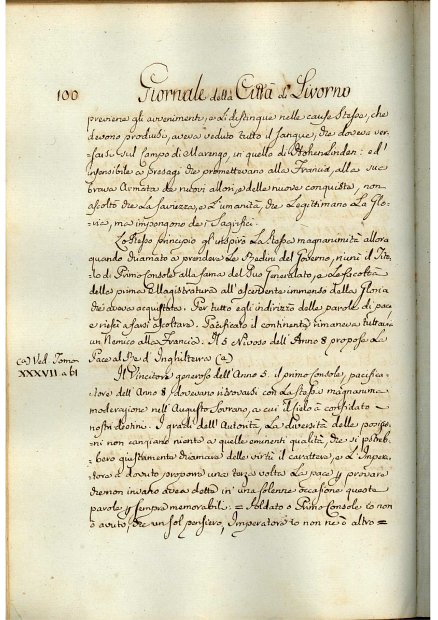 100 Giornale della Città di Livorno
previene gli avvenimenti, e li distingue nelle cause stesse, che
devono produrli, aveva veduto tutto il Sangue, che doveva ver-
=sarsi sul Campo di Marengo, in quello di Hohenlinden: ed in-
=sensibile a presagi che promettevano alla Francia, alla sua
brava Armata de nuovi allori, e delle nuove conquiste, non
ascoltò che La Saviezza, e L'umanità, che Legittimano La Glo-
=ria, ma impongono de' Sagrifici.
Lo Stesso principio gl'inspirò La Stessa magnanimità allora
quando chiamato a prendere Le Redini del Governo, riunì il Tito-
=lo di Primo Console alla fama del Suo Generalato, e Le facoltà
della prima Magistratura all'ascendente immenso della Gloria
che aveva acquistata. Per tutto egli indirizzò delle parole di pace
e riescì a farsi ascoltare. Pacificato il continente rimaneva tuttavia
un Nemico alla Francia. Il 5 Nevoso dell'Anno 8 propose La
Pace al Re d'Inghilterra (a)
(a) Ved. Tomo
XXXVII a 61
Il Vincitore generoso dell'Anno 5. il primo Console, pacifica-
=tore dell'Anno 8, dovevano ritrovarsi con La Stessa magnanima
moderazione nell'Augusto Sovrano, a cui il Cielo à confidato i
nostri destini. I gradi dell'Autorità, La diversità delle posizio-
=ni non cangiano niente a quelle eminenti qualità che si potreb-
=bero giustamente chiamare delle virtù di carattere, e L'Impera-
=tore à dovuto proporre una terza volta La pace per provare
che non invano aveva detta in una solenne occasione questa
parole per sempre memorabili = Soldato o Primo Console io non
ò avuto, che un sol pensiero, Imperatore io non ne ò altro =